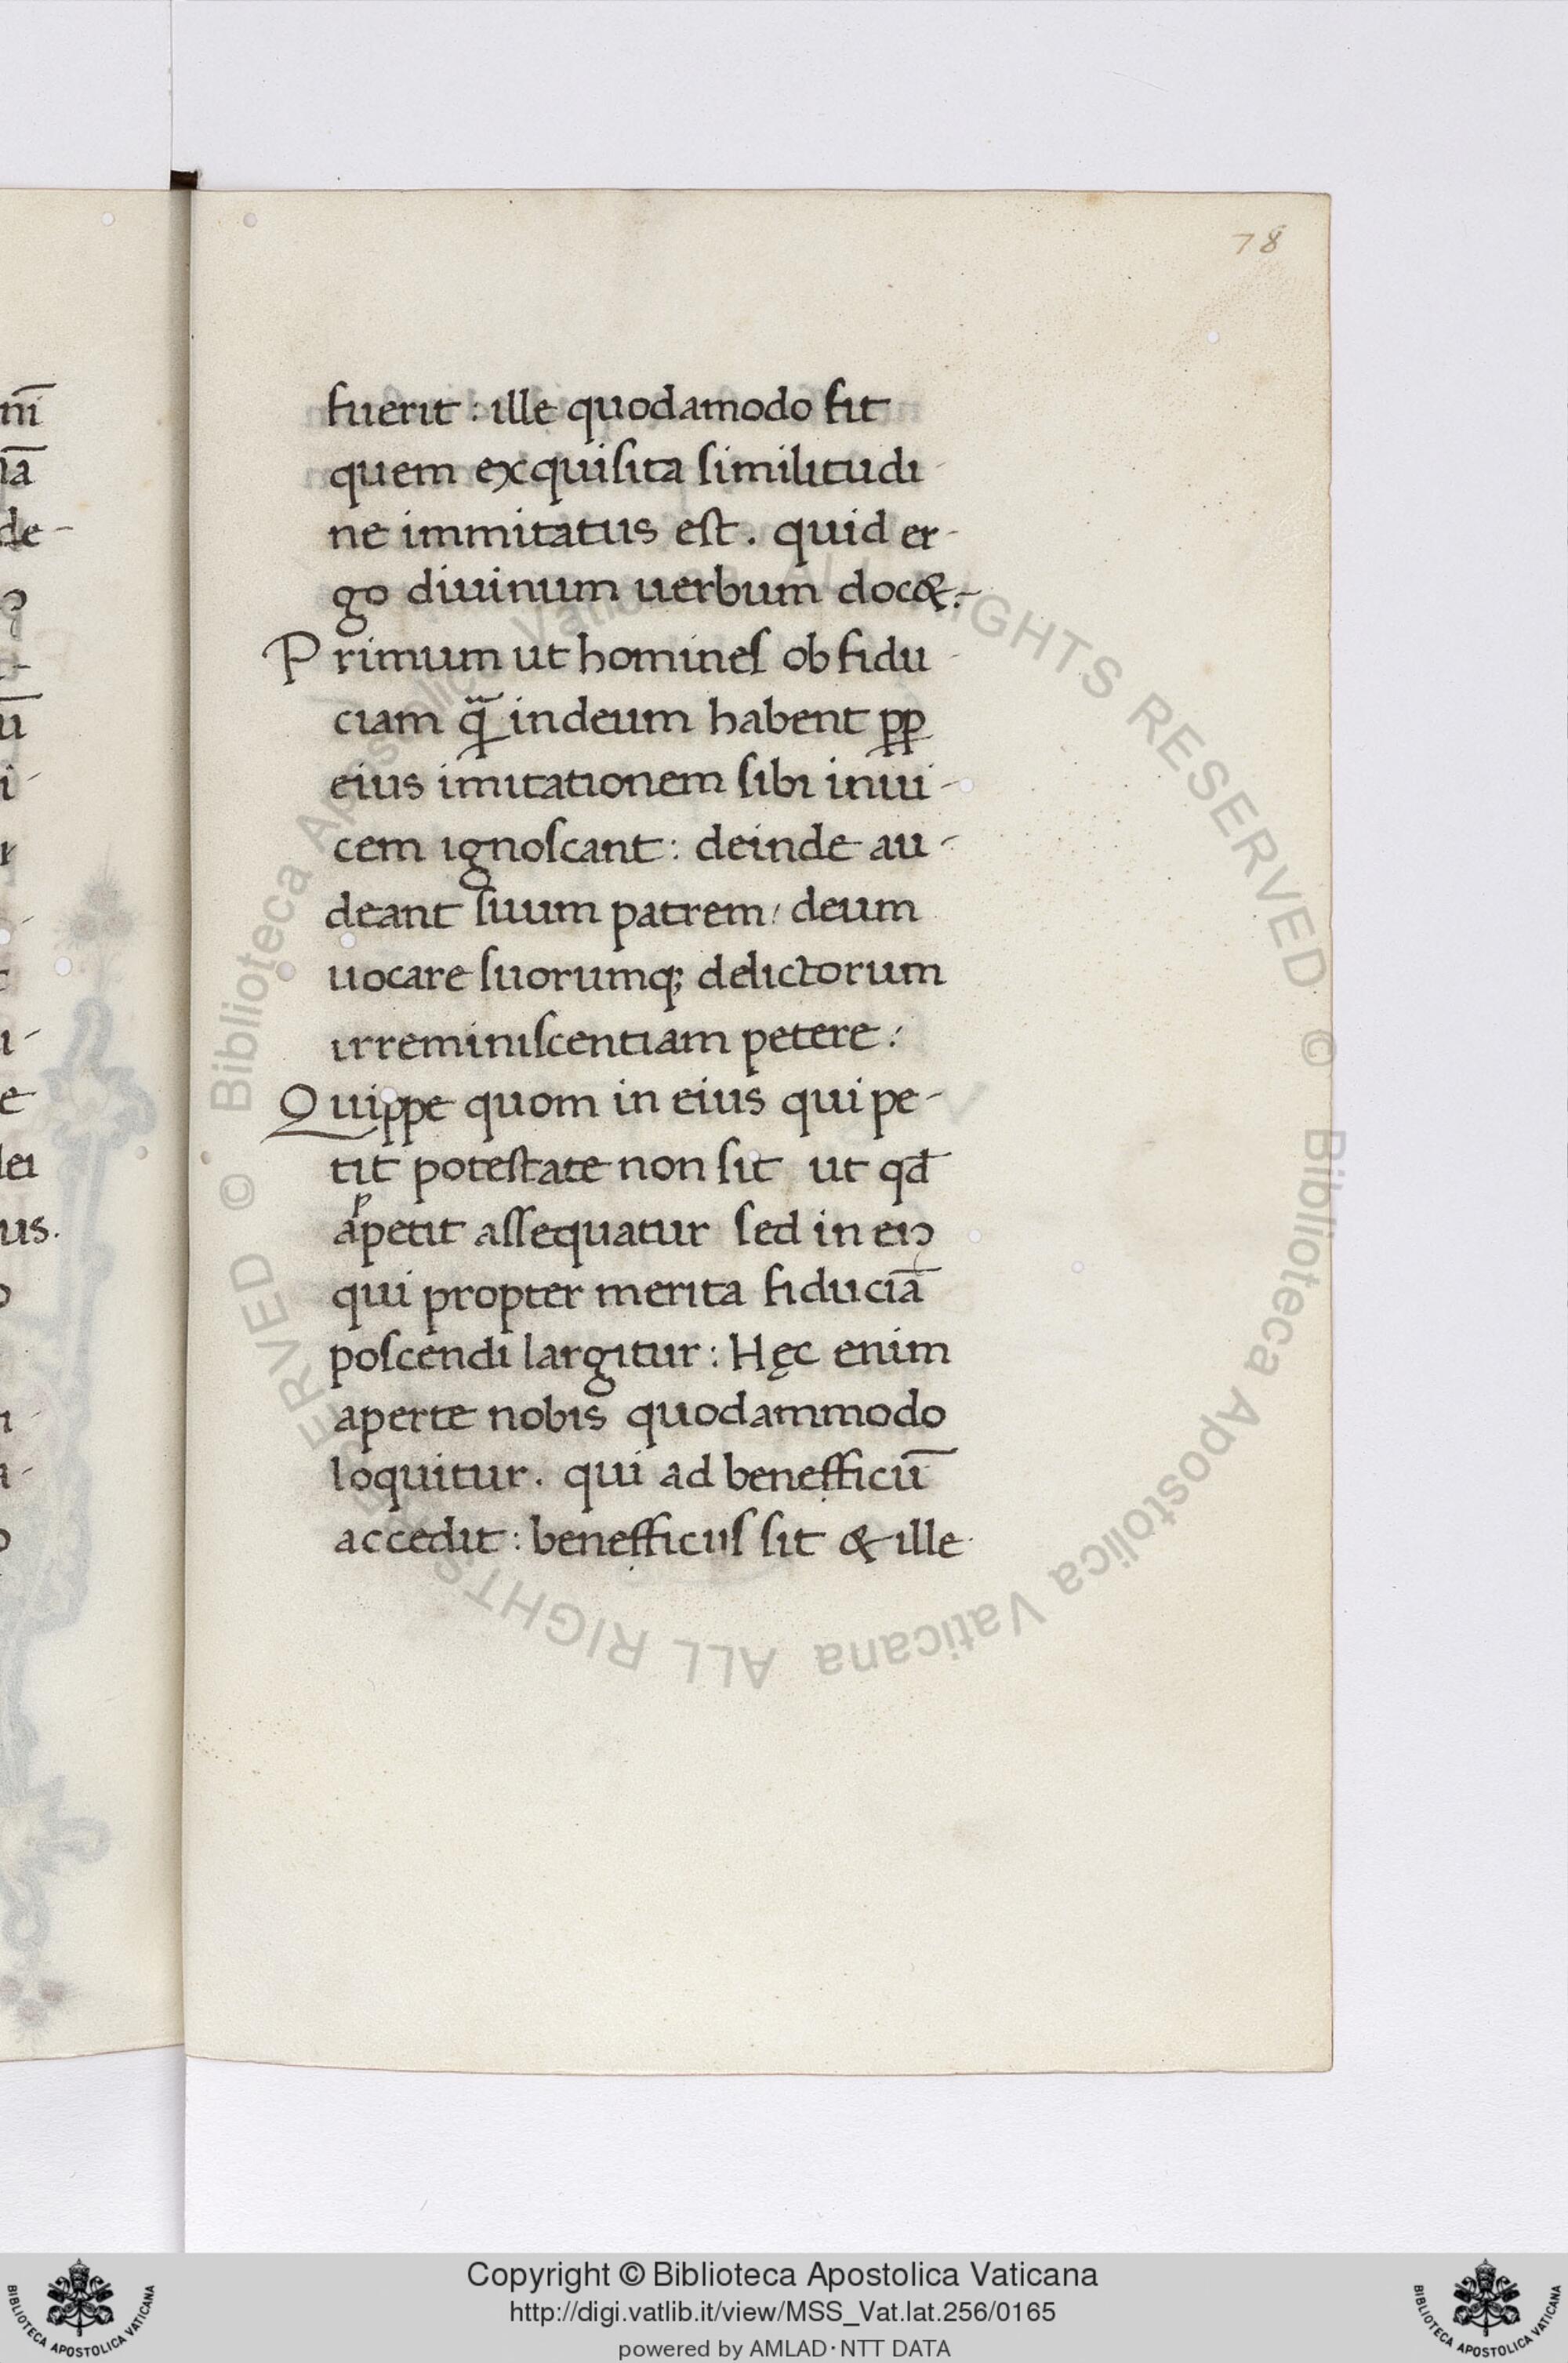 78
fuerit : ille quodamodo fit
quem exquisita similitudi-
ne immitatus est . quid er-
go diuinum uerbum doc& .-
Primum ut homines ob fidu-
ciam qᷓ indeum habent ꝓꝓ
eius imitationem sibi inui-
cem ignoscant : deinde au-
deant suum patrem / deum
uocare suorumq; delictorum
irreminiscentiam petere :
Quippe quom in eius qui pe-
tit potestate non sit ut qđ
appetit assequatur sed in eiꝰ
qui propter merita fiduciā
poscendi largitur : Hęc enim
aperte nobis quodammodo
loquitur . qui ad benefficū
accedit : benefficus sit & ille
Copyright © Biblioteca Apostolica Vaticana
http://digi.vatlib.it/view/MSS_Vat.lat.256/0165
powered by AMLAD·NTT DATA